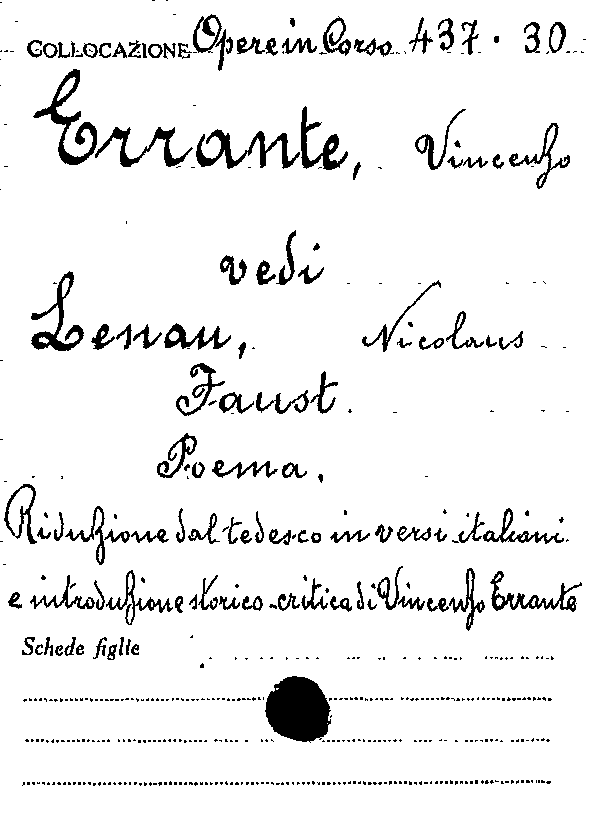 COLLOCAZIONE Opere in Corso 437 · 30
Errante, Vincenzo
vedi
Lenau, Nicolaus
Faust.
Poema.
Riduzione dal tedesco in versi italiani
e introduzione storico-critica di Vincenzo Errante
Schede figlie